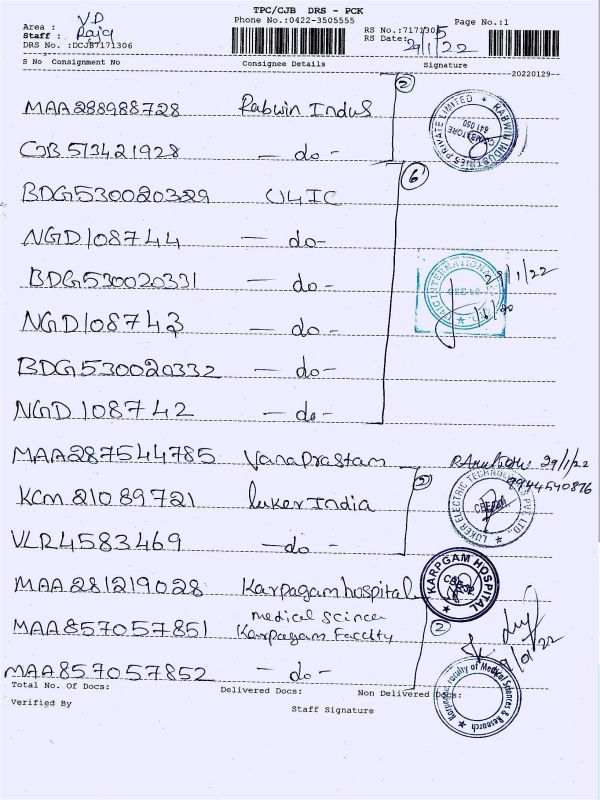 TPC/CJB DRS - PCK
Area : VP Phone No.:0422-3505555 RS No.:7171305 Page No.:1
Staff : Raja RS Date: 29/1/22
DRS No. :DCJB7171306
S No Consignment No Consignee Details Signature
20220129--
MAA288988728 Rabwin Indus 2
CJB513421928 — do —
BDG530020329 U4IC 6
NGD108744 — do —
BDG530020331 — do —
29/1/22
NGD108743 — do —
BDG530020332 — do —
NGD108742 — do —
MAA287544785 Vanaprastam 29/1/22
9944540876
KCM21089721 luker India 2
VLR4583469 — do —
MAA281219028 Karpagam hospital
KARPGAM HOSPITAL
medical scince
MAA857057851 Karpagam Faculty 2
MAA857057852 — do —
Total No. Of Docs: Delivered Docs: Non Delivered Docs:
Verified By Staff Signature
RABWIN INDUSTRIES PRIVATE LIMITED
COIMBATORE
641 050
LUKER ELECTRIC TECHNOLOGIES PVT. LTD.
Karpagam Faculty of Medical Sciences & Research